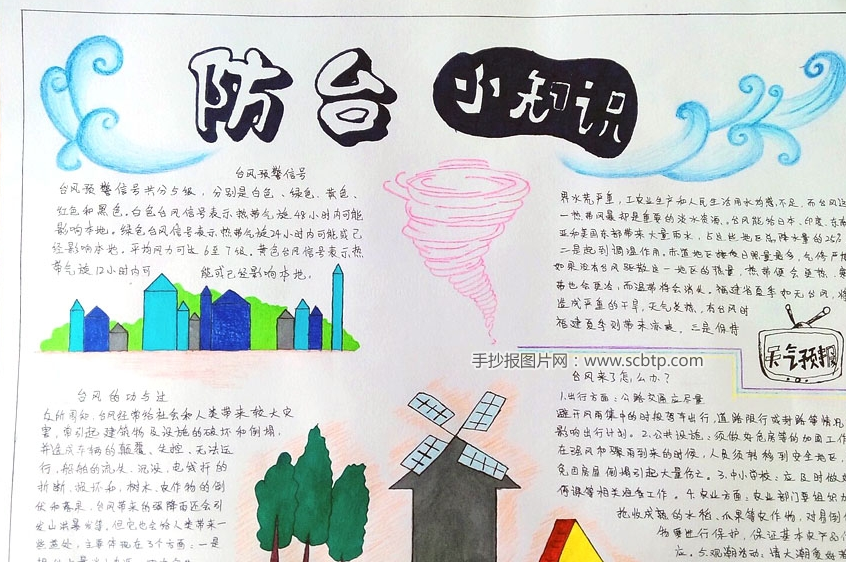 防台
小知识
台风预警信号
台风预警信号共分5级，分别是白色、绿色、黄色、
红色和黑色。白色台风信号表示热带气旋48小时内可能
影响本地。绿色台风信号表示热带气旋24小时内可能或已
经影响本地。平均风力可达6至7级。黄色台风信号表示热
带气旋12小时内可 能或已经影响本地，
台风的功与过
众所周知，台风往往带给社会和人类带来较大灾
害，牵引起建筑物及设施的破坏和倒塌，
并造成车辆的颠覆、失控、无法运
行，船舶的流失、沉没，电线杆的
折断、损坏和，树木、农作物的倒
伏和落花，台风带来的强降雨还会引
发山洪暴发等。但它也会给人类带来一
些益处，主要体现在3个方面：一是
界水荒严重，工农业生产和人民生活用水为感不足，而台风这
一热带风暴却是重要的淡水资源。台风能给日本、印度、东南
亚和美国东部带来大量雨水，占这些地区总降水量的25%
二是起到调温作用。赤道地区接收日照量最多，气候严热
如果没有台风驱散这一地区的热量，热带便会更热，寒
带也会更冷，而温带将会消失。福建省夏季如无台风，将
造成严重的干旱，天气炎热，有台风时
福建夏季则带来凉爽，三是保持
天气预报
手抄报图片网：www.scbtp.com
台风来了怎么办？
1.出行方面：公路交通应尽量
避开风雨集中的时段驾车出行，道路限行或封路等情况
影响出行计划。2.公共设施：须做好危房等的加固工作
在强风和骤雨到来的时候，人员须转移到安全地区，
免因房屋倒塌引起大量伤亡。3.中小学校：应及时做好
停课等相关避各工作。4.农业方面：农业部门要组织力
抢收成熟的水稻、瓜果等农作物，对易倒伏
物要进行保护，保证基本农产品供
应。5.观潮活动：请大潮爱好者